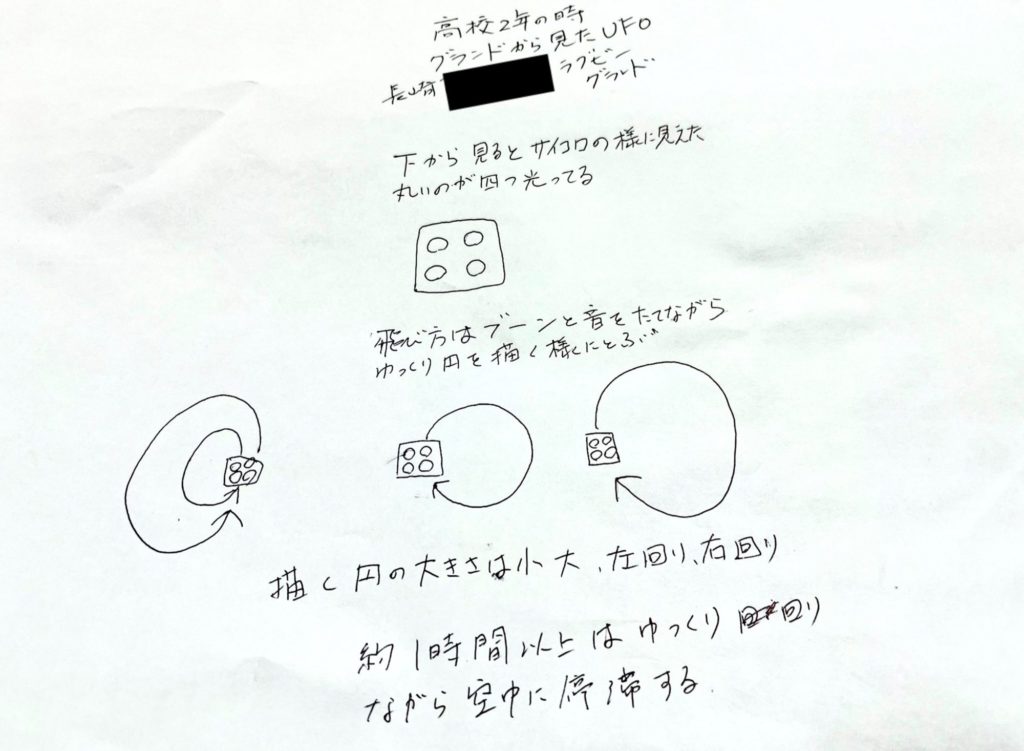 高校2年の時
グランドから見たUFO
長崎 ラグビー
グランド
下から見るとサイコロの様に見えた
丸いのが四つ光ってる
飛び方はブーンと音をたてながら
ゆっくり円を描く様にとぶ
描く円の大きさは小大、左回り、右回り
約1時間以上はゆっくり回り
ながら空中に停滞する